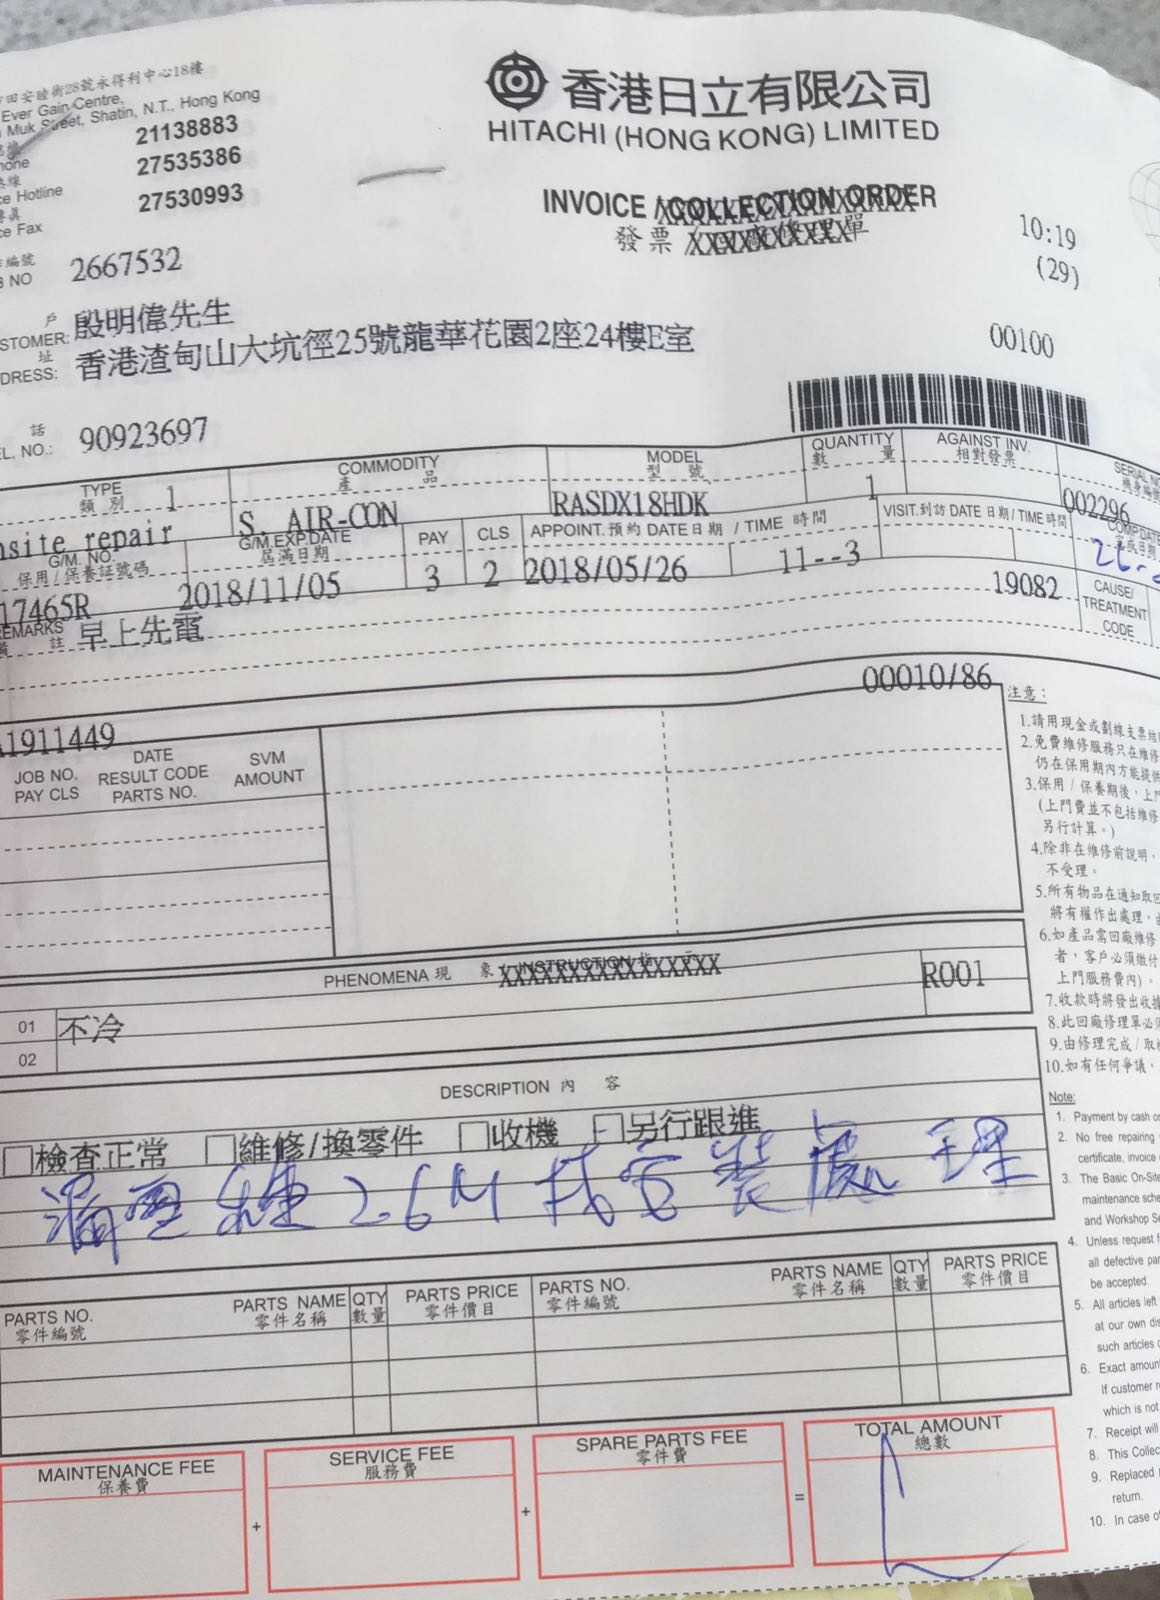 田安睦街28號永得利中心18樓
Ever Gain Centre,
Muk Street, Shatin, N.T., Hong Kong
21138883
27535386
Hotline
27530993
Fax
香港日立有限公司
HITACHI (HONG KONG) LIMITED
INVOICE / COLLECTION ORDER
發票
10:19
(29)
編號
NO 2667532
戶
殷明偉先生
STOMER:
址
DRESS: 香港渣甸山大坑徑25號龍華花園2座24樓E室
00100
話
L. NO.: 90923697
TYPE 類別 1
COMMODITY 產品
MODEL 型號
QUANTITY 數量
AGAINST INV. 相對發票
SERIAL NO
nsite repair
S. AIR-CON
RASDX18HDK
1
002296
G/M. NO. 保用/保養証號碼
G/M.EXP.DATE 屆滿日期
PAY
CLS
APPOINT.預約 DATE日期 / TIME 時間
VISIT.到訪 DATE 日期/TIME時間
COMP.DATE 完成日期
17465R
2018/11/05
3
2
2018/05/26
11--3
19082
CAUSE/ TREATMENT CODE
REMARKS 備註 早上先電
00010/86
A1911449
JOB NO. PAY CLS
DATE RESULT CODE PARTS NO.
SVM AMOUNT
PHENOMENA 現象 / INSTRUCTION
R001
01 不冷
02
DESCRIPTION 內容
□檢查正常 □維修/換零件 □收機 □另行跟進
處理
PARTS NO. 零件編號
PARTS NAME 零件名稱
QTY 數量
PARTS PRICE 零件價目
PARTS NO. 零件編號
PARTS NAME 零件名稱
QTY 數量
PARTS PRICE 零件價目
MAINTENANCE FEE 保養費
+
SERVICE FEE 服務費
+
SPARE PARTS FEE 零件費
=
TOTAL AMOUNT 總數
注意：
1.請用現金或劃線支票結
2.免費維修服務只在維修
仍在保用期內方能提供
3.保用 / 保養期後，上門
(上門費並不包括維修
另行計算。)
4.除非在維修前說明，
不受理。
5.所有物品在通知取回
將有權作出處理，
6.如產品需回廠維修
者，客戶必須繳付
上門服務費內)。
7.收款時將發出收據
8.此回廠修理單必須
9.由修理完成 / 取
10.如有任何爭議，
Note:
1. Payment by cash or
2. No free repairing
certificate, invoice
3. The Basic On-Site
maintenance sche
and Workshop Se
4. Unless request f
all defective par
be accepted.
5. All articles left
at our own dis
such articles
6. Exact amoun
If customer r
which is not
7. Receipt will
8. This Collec
9. Replaced
return.
10. In case of